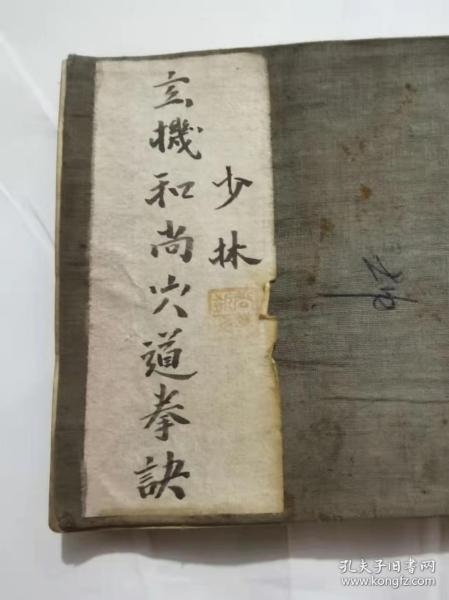 少林
玄機和尚穴道拳訣
孔夫子旧书网
www.kongfz.com